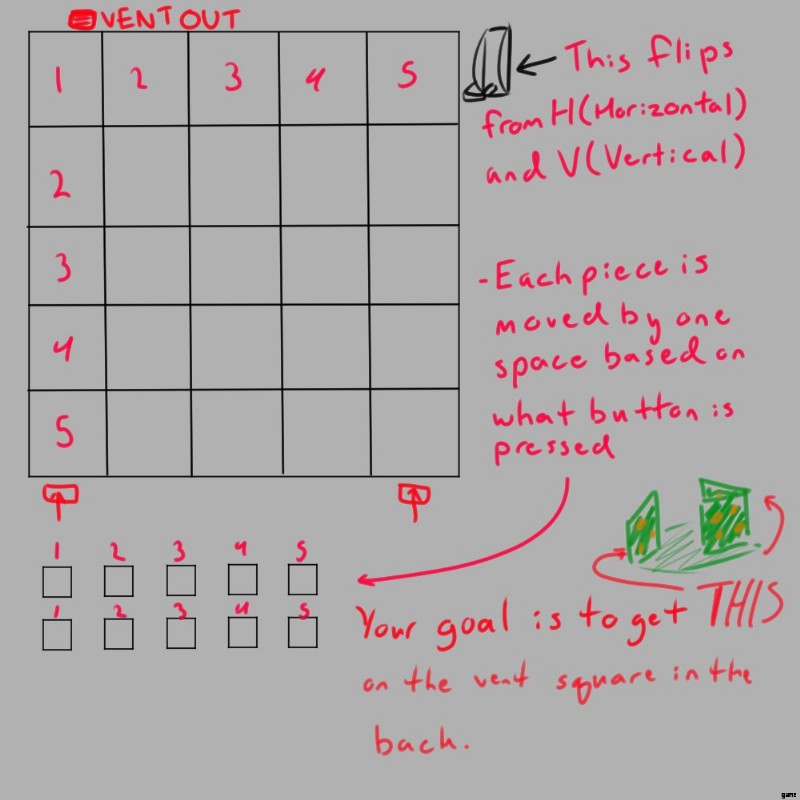 VENT OUT
1 2 3 4 5
2
3
4
5
This flips
from H(Horizontal)
and V(Vertical)
- Each piece is
moved by one
space based on
what button is
pressed
1 2 3 4 5
1 2 3 4 5
Your goal is to get THIS
on the vent square in the
back.
game